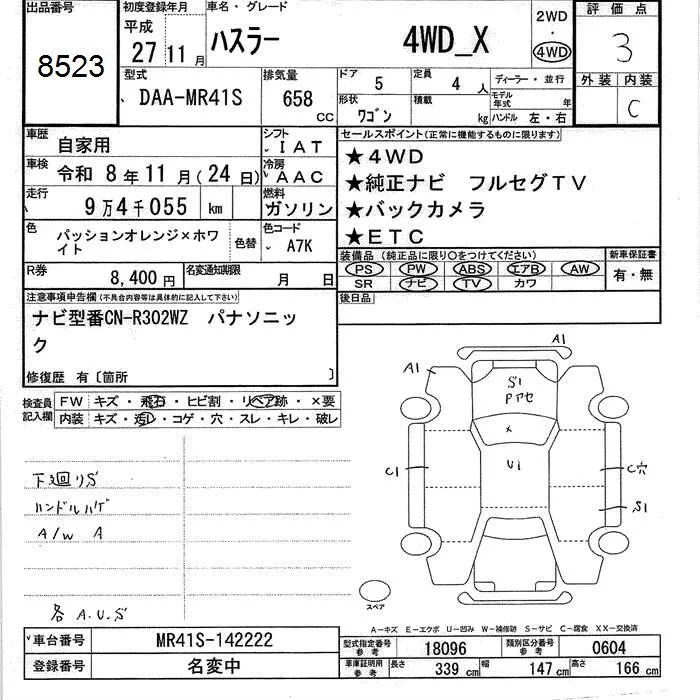 出品番号 初度登録年月 車名・グレード 評価点
8523 平成 27 11月 ハスラー 4WD_X 2WD・4WD 3
型式 排気量 ドア 5 定員 4人 ディーラー・並行 外装 内装
DAA-MR41S 658 CC 形状 ワゴン 積載 kg モデル年式 年 ハンドル 左・右 C
車歴 自家用 シフト IAT セールスポイント(正常に機能するものに限ります)
車検 令和 8年11月(24日) 冷房 AAC ★4WD
走行 9万4千055 km 燃料 ガソリン ★純正ナビ フルセグTV
色 パッションオレンジ×ホワイト 色替 色コード A7K ★バックカメラ
★ETC
装備品(純正品に限り○をつけてください) 新車保証書
R券 8,400円 名変通知期限 月 日 PS PW ABS エアB AW 有・無
SR ナビ TV カワ
注意事項申告欄(不具合内容等は具体的に記入して下さい) 後日品
ナビ型番CN-R302WZ パナソニック
修復歴 有〔箇所 〕
検査員記入欄 FW キズ・飛石・ヒビ割・リペア跡・×要
内装 キズ・汚レ・コゲ・穴・スレ・キレ・破レ
A1
A1
S1
Pアセ
×
U1
C1
C穴
S1
下廻りS
ハンドルハゲ
A/W A
各 A.U.S
スペア
A-キズ E-エクボ U-凹み W-補修跡 S-サビ C-腐食 XX-交換済
車台番号 MR41S-142222 型式指定番号 参考 18096 類別区分番号 参考 0604
登録番号 名変中 車庫証明用 参考 長さ 339 cm 幅 147 cm 高さ 166 cm